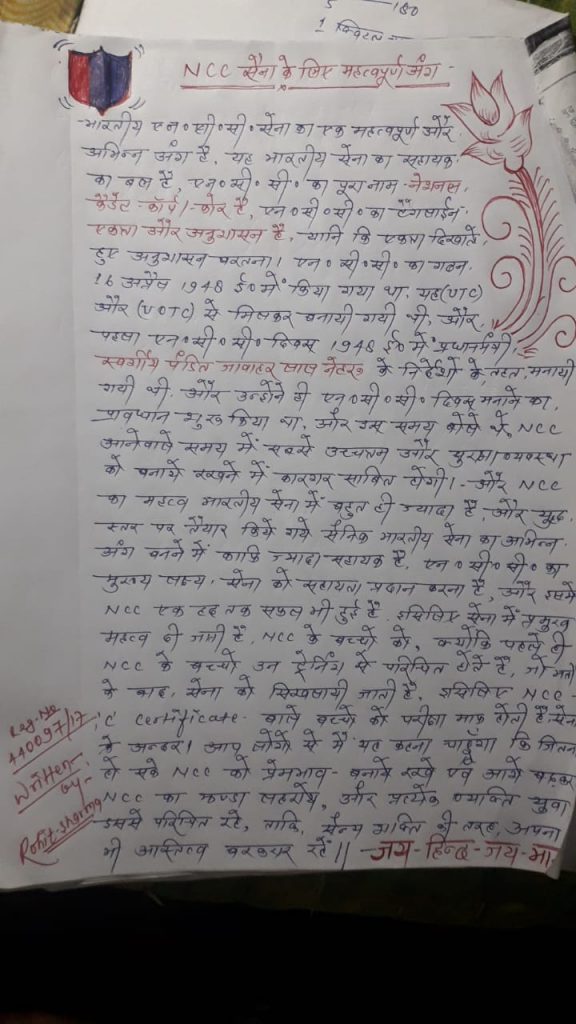 5 — 180
1 क्विंटल
NCC सेना के लिए महत्वपूर्ण अंग -
भारतीय एन॰सी॰सी॰ सेना का एक महत्वपूर्ण और
अभिन्न अंग है, यह भारतीय सेना का सहायक
का बल है, एन॰सी॰सी॰ का पूरा नाम नेशनल
कैडेट कॉर्प/कोर है, एन॰सी॰सी॰ का
एकता और अनुशासन है, यानि कि एकता दिखाते
हुए अनुशासन बरतना। एन॰सी॰सी॰ का गठन
16 अप्रैल 1948 ई॰ में किया गया था, यह (UTC)
और (UOTC) से मिलकर बनायी गयी थी, और
पहला एन॰सी॰सी॰ दिवस 1948 ई॰ में प्रधानमंत्री
स्वर्गीय पंडित जवाहर लाल नेहरू के निर्देशों के तहत मनायी
गयी थी, और उन्होंने ही एन॰सी॰सी॰ दिवस मनाने का
प्रावधान शुरू किया था, और उस समय बोले थे, NCC
आनेवाले समय में सबसे उच्चतम और सुरक्षा व्यवस्था
को बनाये रखने में कारगर साबित होगी। - और NCC
का महत्व भारतीय सेना में बहुत ही ज्यादा है, और
स्तर पर तैयार किये गये सैनिक भारतीय सेना का अभिन्न
अंग बनने में काफि ज्यादा सहायक है, एन॰सी॰सी॰ का
मुख्य लक्ष्य, सेना को सहायता प्रदान करना है, और इसमें
NCC एक हद तक सफल भी हुई है, इसिलिए सेना में
महत्व दी जाती है, NCC के बच्चो को, क्योंकि पहले ही
NCC के बच्चो उन ट्रेनिंग से परिचित होते है, जो भर्ती
के बाद, सेना को सिखलायी जाती है, इसिलिए NCC -
'C' certificate वाले बच्चो की परीक्षा माफ होती है सेना
के अन्दर। आप लोगों से मैं यह कहना चाहूँगा कि जितना
हो सके NCC को प्रेमभाव - बनाये रखे एवं आगे बढ़कर
NCC का झण्डा लहराये, और प्रत्येक व्यक्ति युवा
इससे परिचित रहे, ताकि, सैन्य शक्ति की तरह, अपना
भी अस्तित्व बरकरार रहें।। - जय - हिन्द - जय - मा
Reg. No
440097/17
Written
by -
Rohit Sharma